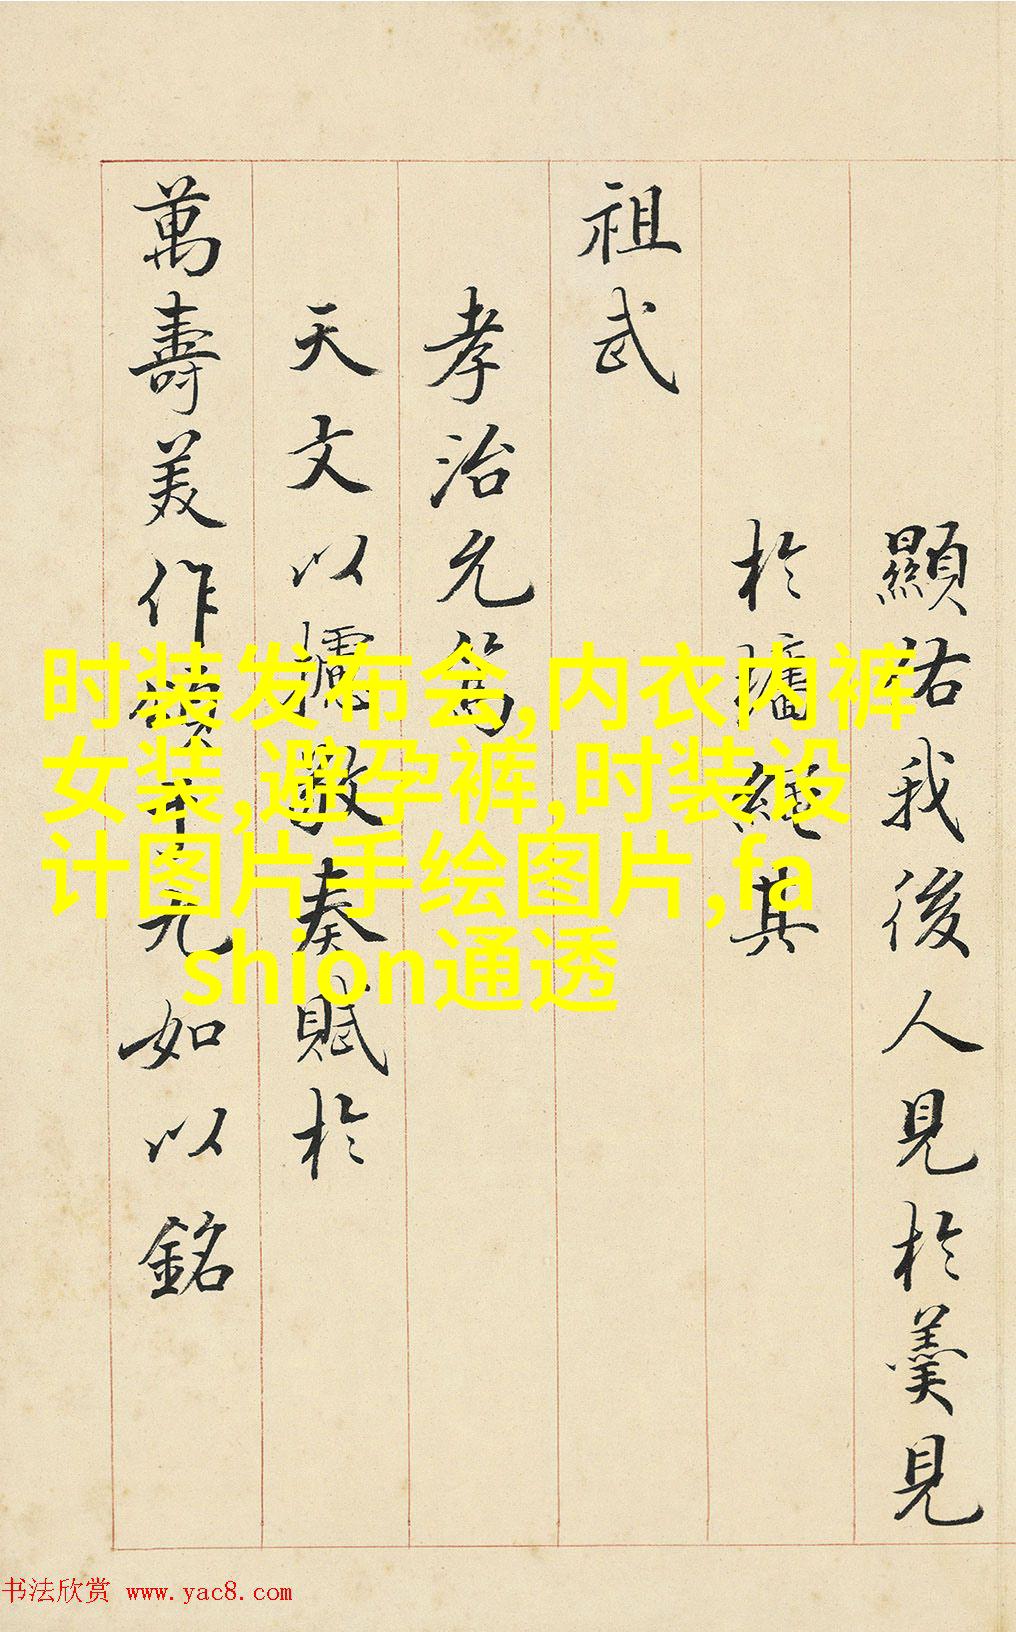 顯祐我後人見於羹見
於墻繩其
祖武
孝治允篤
天文以攄敬奏賦於
萬壽美作頌平元如以銘
时装发布会,内衣内裤
女装,避孕裤,时装设
计图片手绘图片,fa
shion通透
书法欣赏 www.yac8.com